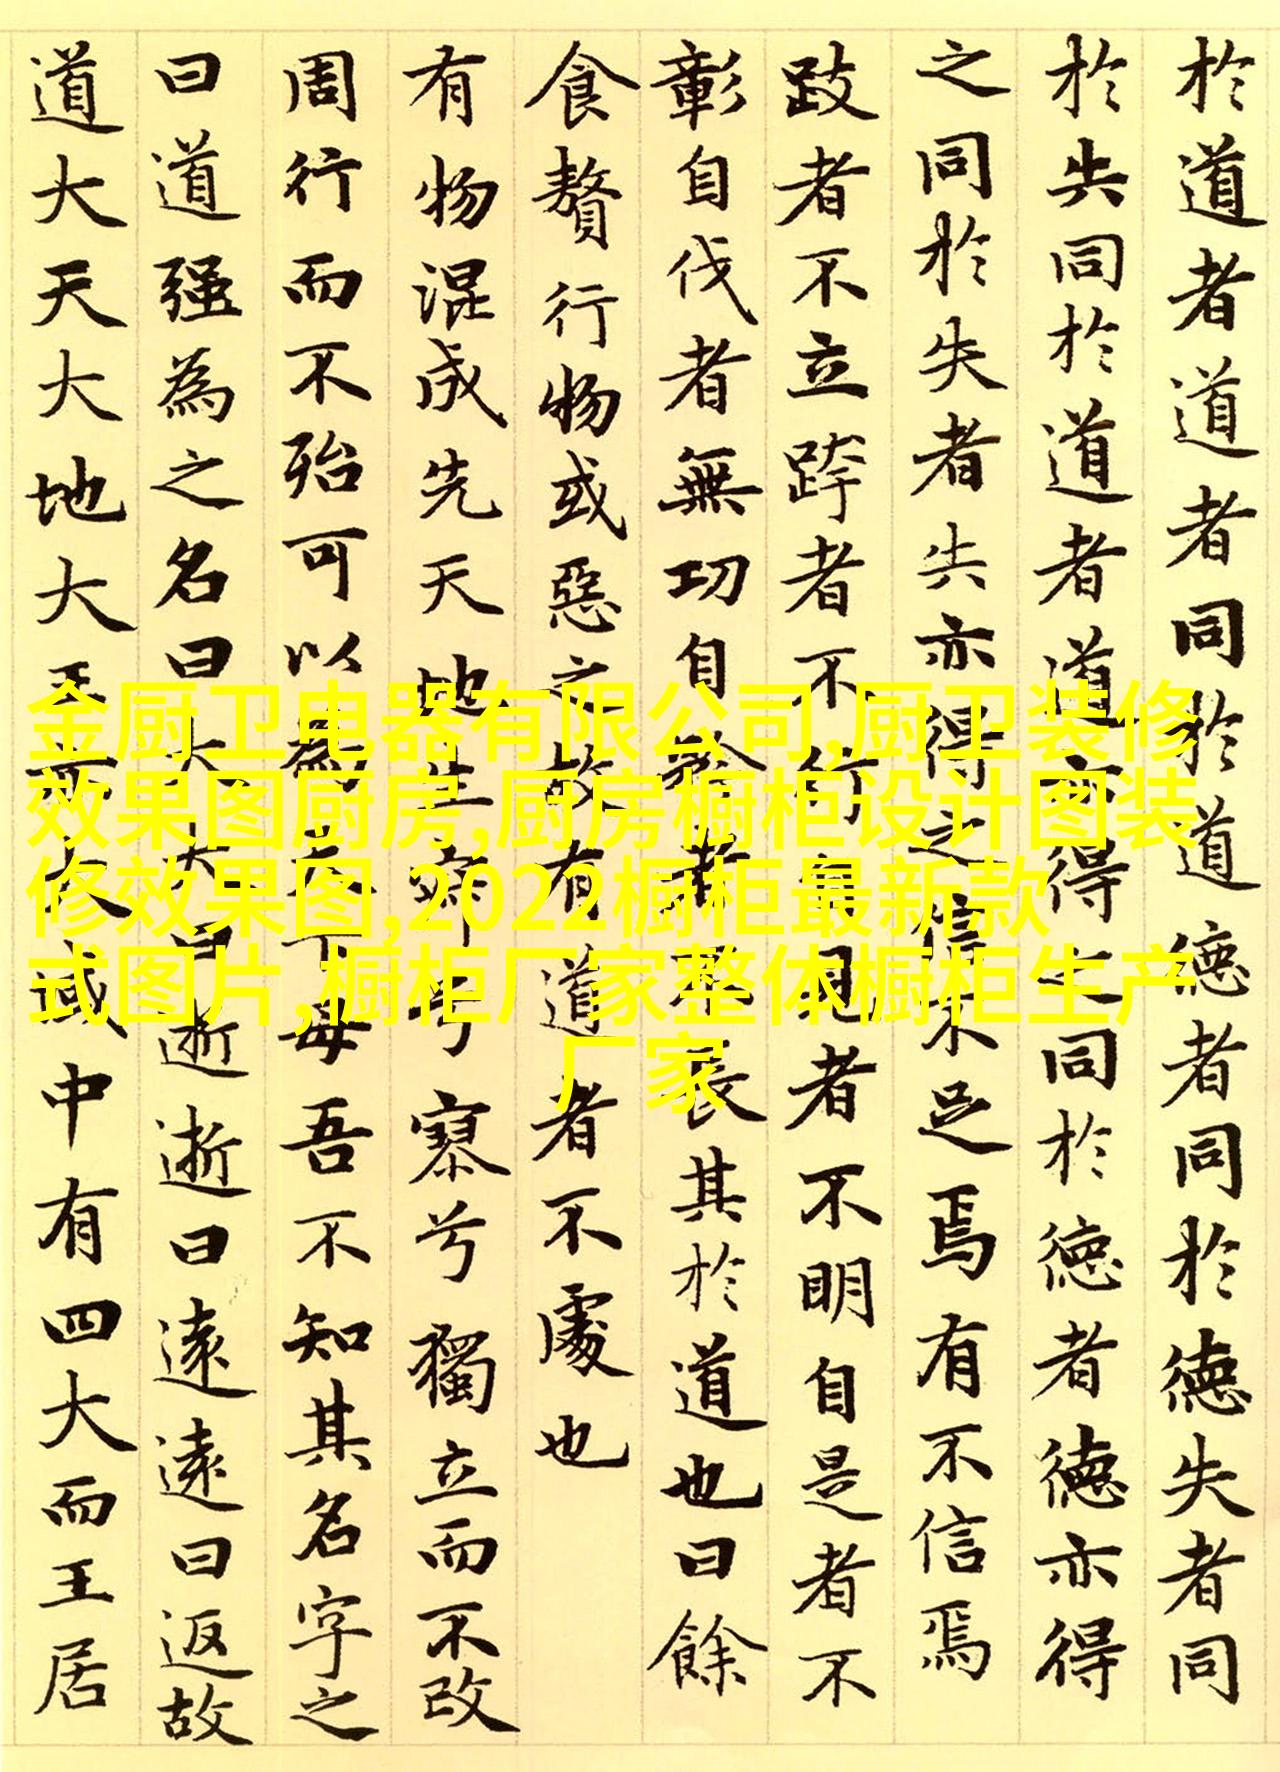 於道者道者同於道德者同於德失者同
於失同於道者道亦得之同於德者德亦得
之同於失者失亦得之信不足焉有不信焉
跂者不立跨者不行自見者不明自是者不
彰自伐者無功自矜者不長其於道也曰餘
食贅行物或惡之故有道者不處也
有物混成先天地生寂兮寥兮獨立而不改
周行而不殆可以為天下母吾不知其名字之
曰道强為之名曰大大曰逝逝曰遠遠曰返故
道大天大地大王亦大域中有四大而王居
金厨卫电器有限公司,厨卫装修
效果图厨房,厨房橱柜设计图装
修效果图,2022橱柜最新款
式图片,橱柜厂家整体橱柜生产
厂家